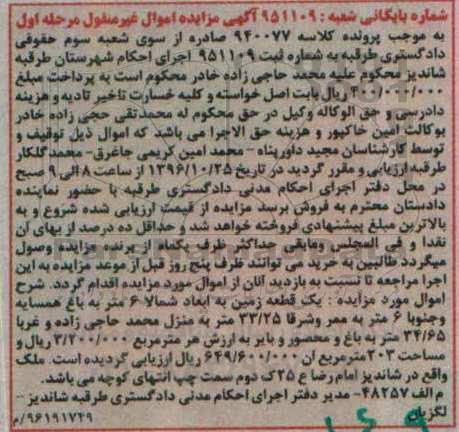 شماره بایگانی شعبه : ۹۵۱۱۰۹ آگهی مزایده اموال غیرمنقول مرحله اول
به موجب پرونده کلاسه ۹۴۰۰۷۷ صادره از سوی شعبه سوم حقوقی
دادگستری طرقبه به شماره ثبت ۹۵۱۱۰۹ اجرای احکام شهرستان طرقبه
شاندیز محکوم علیه محمد حاجی زاده خادر محکوم است به پرداخت مبلغ
۴۰۰/۰۰۰/۰۰۰ ریال بابت اصل خواسته و کلیه خسارت تاخیر تادیه و هزینه
دادرسی و حق الوکاله وکیل در حق محکوم له محمدتقی حجی زاده خادر
بوکالت امین خاکپور و هزینه حق الاجرا می باشد که اموال ذیل توقیف و
توسط کارشناسان مجید داورپناه - محمد امین کریمی جاغرق- محمدگلکار
طرقبه ارزیابی و مقرر گردید در تاریخ ۱۳۹۶/۱۰/۲۵ از ساعت ۸ الی ۹ صبح
در محل دفتر اجرای احکام مدنی دادگستری طرقبه با حضور نماینده
دادستان محترم به فروش برسد مزایده از قیمت ارزیابی شده شروع و به
بالاترین مبلغ پیشنهادی فروخته خواهد شد و حداقل ده درصد از بهای آن
نقدا و فی المجلس ومابقی حداکثر ظرف یکماه از برنده مزایده وصول
میگردد طالبین به خرید می توانند ظرف پنج روز قبل از موعد مزایده به این
اجرا مراجعه تا نسبت به بازدید آنان از اموال مورد مزایده اقدام گردد. شرح
اموال مورد مزایده : یک قطعه زمین به ابعاد شمالا ۶ متر به باغ همسایه
وجنوبا ۶ متر به ممر وشرقا ۳۳/۲۵ متر به منزل محمد حاجی زاده و غربا
۳۴/۶۵ متر به باغ و محصور و بایر به ارزش هر مترمربع ۳/۲۰۰/۰۰۰ ریال و
مساحت ۲۰۳ مترمربع ان ۶۴۹/۶۰۰/۰۰۰ ریال ارزیابی گردیده است. ملک
واقع در شاندیز امام رضا ع ۲۵ ک دوم سمت چپ انتهای کوچه می باشد.
م الف ۴۸۲۵۷- مدیر دفتر اجرای احکام مدنی دادگستری طرقبه شاندیز -
لگزیان ۹۶۱۹۱۷۴۹/م